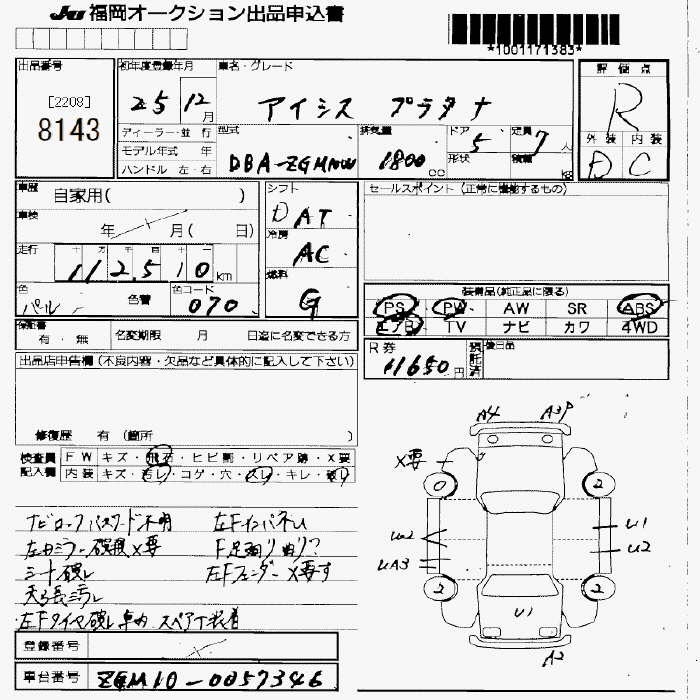 JU 福岡オークション出品申込書
*1001171383*
出品番号
[2208]
8143
初年度登録年月
25 12 月
車名・グレード
アイシス プラタナ
評価点
R
外装 内装
D C
ディーラー・並行
モデル年式 年
ハンドル 左・右
型式
DBA-ZGM10W
排気量
1800 cc
ドア 5
形状
定員 7 人
積載 kg
車歴 自家用( )
車検 年 月( 日)
走行 十 万 千 百 十 一
112510 km
色 パール 色替
色コード 070
シフト
D AT
冷房
AC
燃料
G
セールスポイント (正常に機能するもの)
装備品(純正品に限る)
PS PW AW SR ABS
エアB TV ナビ カワ 4WD
保証書 有・無
名変期限 月 日迄に名変できる方
R券 11650 円
預託済
後日品
出品店申告欄(不良内容・欠品など具体的に記入して下さい)
修復歴 有 (箇所 )
検査員記入欄
FW キズ・飛石・ヒビ割・リペア跡・X要
内装 キズ・汚レ・コゲ・穴・スレ・キレ・破レ
ナビロックパスワード不明
左Fインパネム
左ドアミラー破損X要
F足廻り曲り?
シート破レ
左Fフェンダー X要す
天張汚レ
左Fタイヤ破レ車内 スペアT装着
登録番号
車台番号 ZGM10-0057346
A4 A3P
X要
0 2
U2 U1
UA3 U2
2 2
U1
A2